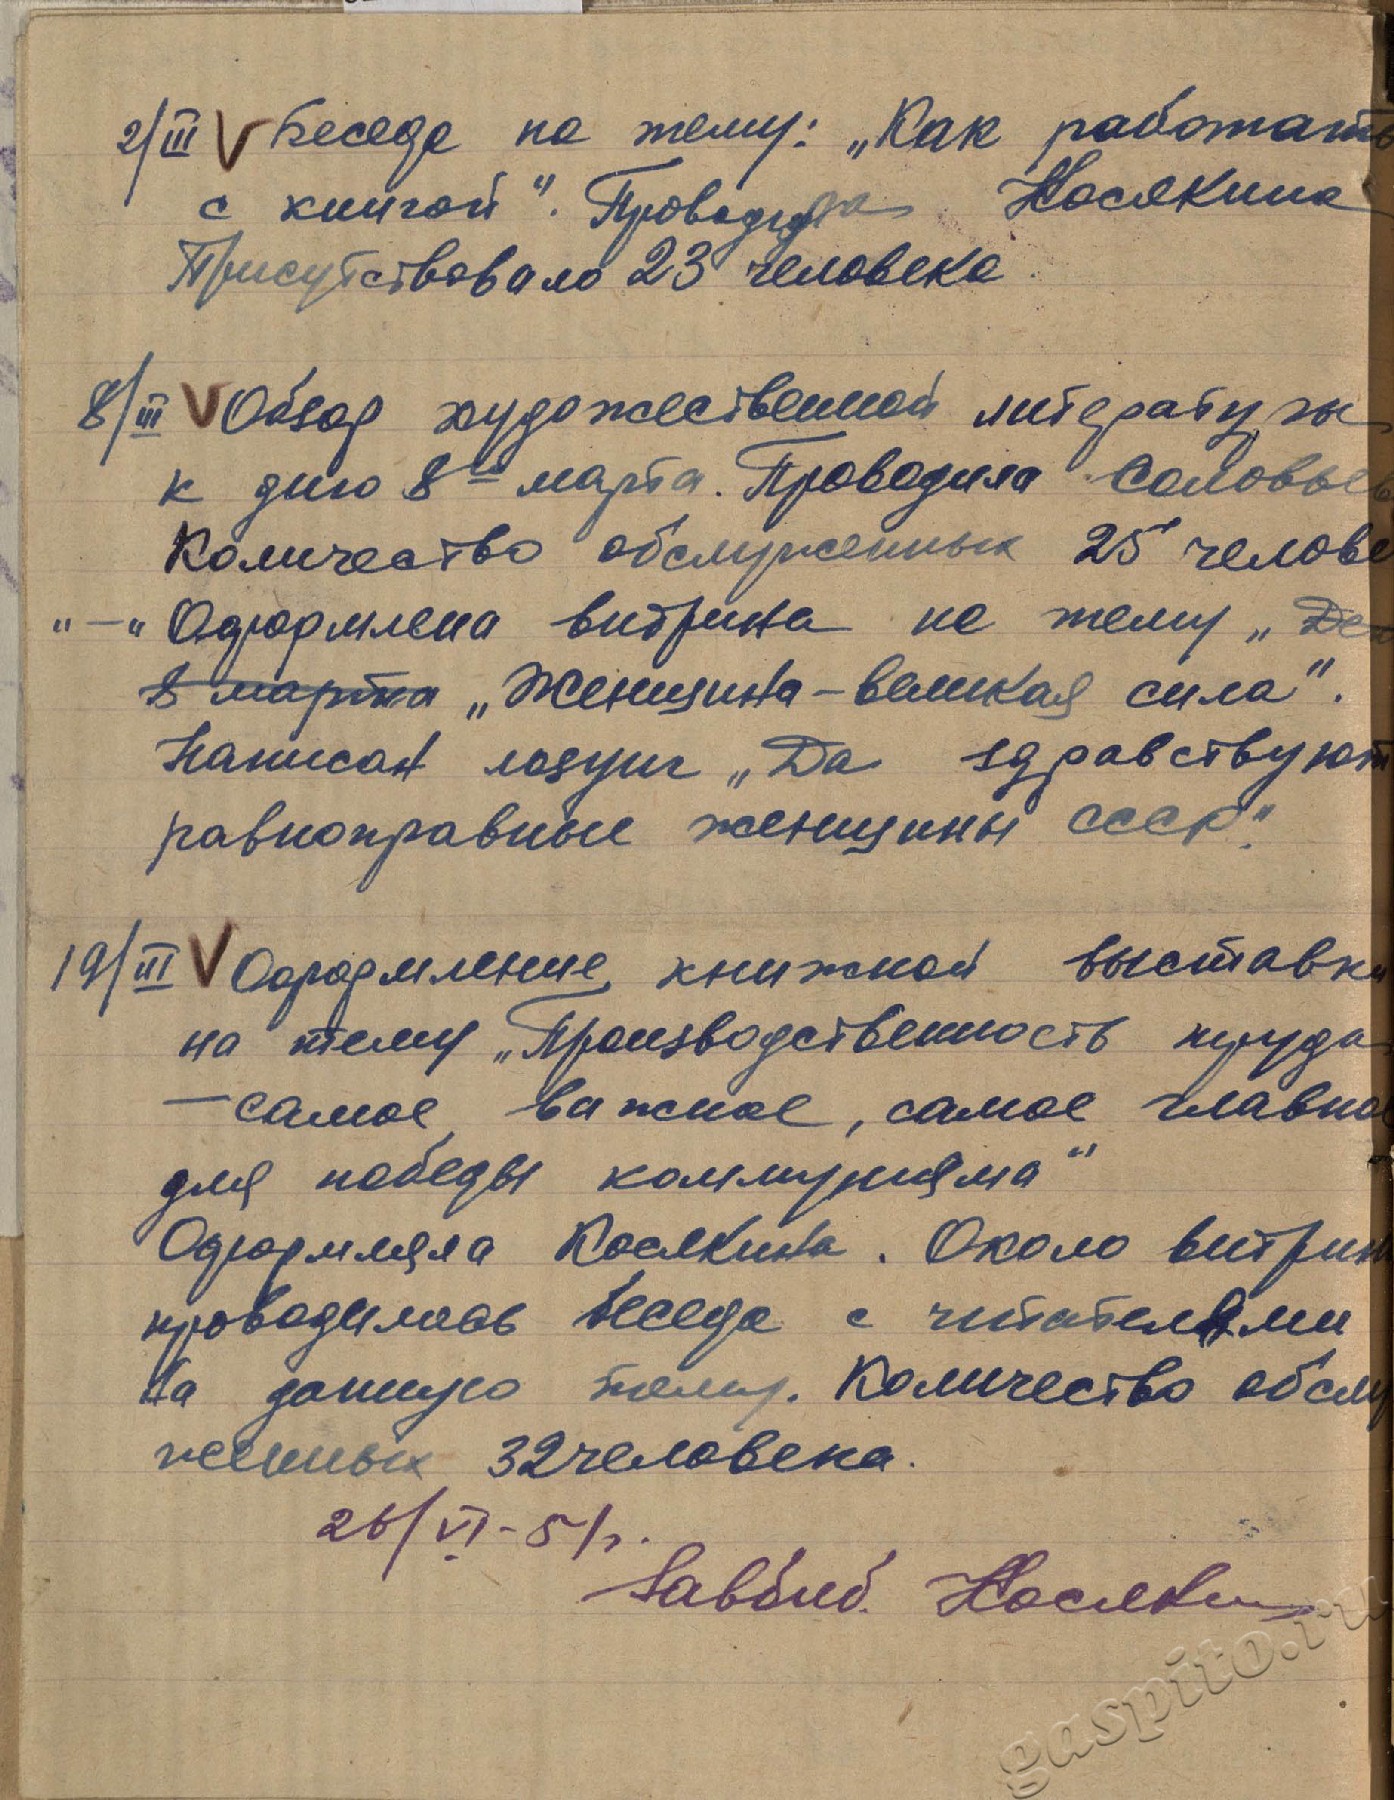 2/III V Беседа на тему: „Как работать
с книгой". Проводила Косякина
Присутствовало 23 человека
8/III V Обзор художественной литературы
к дню 8го марта. Проводила Соловьев
Количество обслуженных 25 челове
"—" Оформлена витрина на тему „Ден
8 марта „Женщина – великая сила".
Написан лозунг „Да здравствуют
равноправные женщины СССР".
19/III V Оформление книжной выставки
на тему „Производственность труда
– самое важное, самое главное
для победы коммунизма"
Оформляла Косякина. Около витрин
проводилась беседа с читателями
на данную тему. Количество обслу
женных 32 человека.
26/VI-51г.
Завбиб. Косякин
gaspito.ru